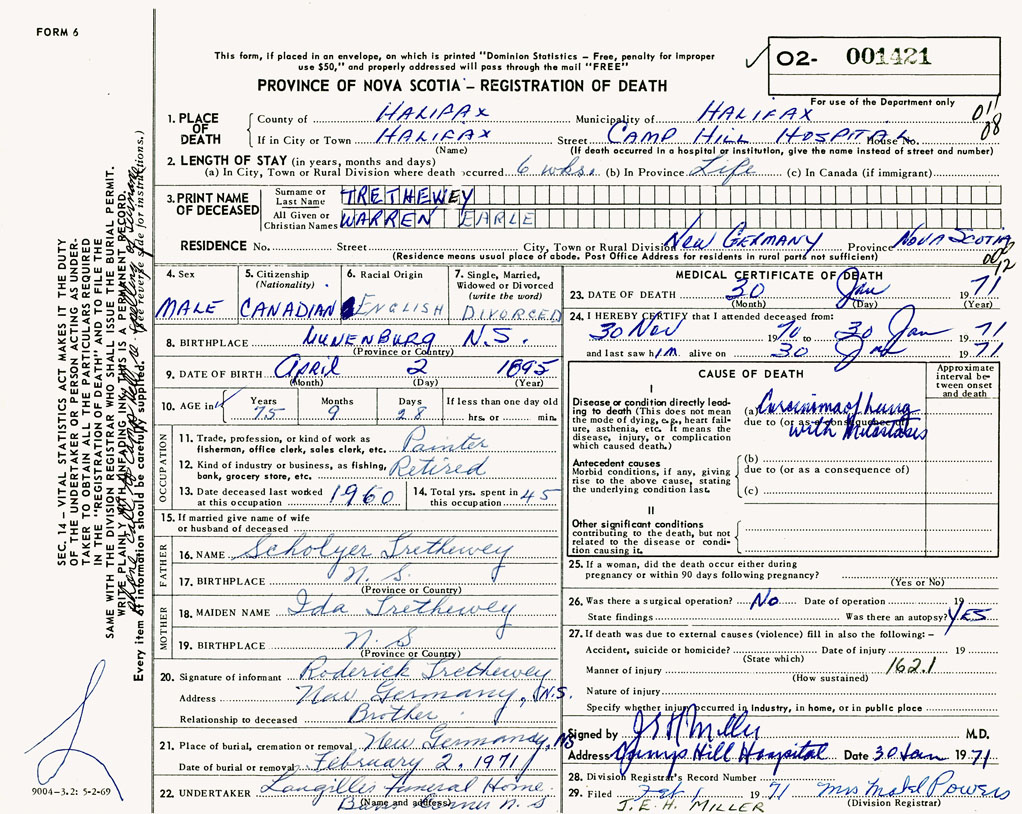 FORM 6
This form, if placed in an envelope, on which is printed "Dominion Statistics – Free, penalty for improper
use $50," and properly addressed will pass through the mail "FREE"
PROVINCE OF NOVA SCOTIA – REGISTRATION OF DEATH
02- 001421
For use of the Department only
011
08
1. PLACE OF DEATH
County of HALIFAX Municipality of HALIFAX
If in City or Town HALIFAX Street CAMP HILL HOSPITAL House No.
(Name) (If death occurred in a hospital or institution, give the name instead of street and number)
2. LENGTH OF STAY (in years, months and days)
(a) In City, Town or Rural Division where death occurred 6 wks. (b) In Province Life (c) In Canada (if immigrant)
3. PRINT NAME OF DECEASED
Surname or Last Name TRETHEWEY
All Given or Christian Names WARREN EARLE
RESIDENCE No. Street City, Town or Rural Division NEW GERMANY Province NOVA SCOTIA
(Residence means usual place of abode. Post Office Address for residents in rural parts not sufficient)
12
4. Sex MALE
5. Citizenship (Nationality) CANADIAN
6. Racial Origin ENGLISH
7. Single, Married, Widowed or Divorced (write the word) DIVORCED
8. BIRTHPLACE LUNENBURG N.S.
(Province or Country)
9. DATE OF BIRTH APRIL 2 1895
(Month) (Day) (Year)
10. AGE in Years 75 Months 9 Days 28 If less than one day old hrs. or min.
OCCUPATION
11. Trade, profession, or kind of work as
fisherman, office clerk, sales clerk, etc. Painter
12. Kind of industry or business, as fishing,
bank, grocery store, etc. Retired
13. Date deceased last worked at this occupation 1960
14. Total yrs. spent in this occupation 45
15. If married give name of wife
or husband of deceased
FATHER
16. NAME Scholyer Trethewey
17. BIRTHPLACE N.S.
(Province or Country)
MOTHER
18. MAIDEN NAME Ida Trethewey
19. BIRTHPLACE N.S
(Province or Country)
20. Signature of informant Roderick Trethewey
Address New Germany, N.S.
Relationship to deceased Brother
21. Place of burial, cremation or removal New Germany, NS
Date of burial or removal February 2, 1971
22. UNDERTAKER Langilles Funeral Home
Corner N.S
(Name and address)
MEDICAL CERTIFICATE OF DEATH
23. DATE OF DEATH 30 Jan 1971
(Month) (Day) (Year)
24. I HEREBY CERTIFY that I attended deceased from:
30 Nov 1970 to 30 Jan 1971
and last saw him alive on 30 Jan 1971
CAUSE OF DEATH
Approximate interval between onset and death
I
Disease or condition directly leading to death (This does not mean the mode of dying, e.g., heart failure, asthenia, etc. It means the disease, injury, or complication which caused death.)
(a) Carcinoma of Lung
due to (or as a consequence of)
with Metastasis
Antecedent causes
Morbid conditions, if any, giving rise to the above cause, stating the underlying condition last.
(b)
due to (or as a consequence of)
(c)
II
Other significant conditions
contributing to the death, but not related to the disease or condition causing it.
25. If a woman, did the death occur either during
pregnancy or within 90 days following pregnancy?
(Yes or No)
26. Was there a surgical operation? No Date of operation 19
State findings Was there an autopsy? YES
27. If death was due to external causes (violence) fill in also the following: –
Accident, suicide or homicide? Date of injury 19
(State which)
Manner of injury 162.1
(How sustained)
Nature of injury
Specify whether injury occurred in industry, in home, or in public place
Signed by J E H Miller M.D.
Address Hill Hospital Date 30 Jan 1971
28. Division Registrar's Record Number
29. Filed Feb 1 1971 Mrs Mabel Powers
J.E.H. MILLER (Division Registrar)
SEC. 14 – VITAL STATISTICS ACT MAKES IT THE DUTY
OF THE UNDERTAKER OR PERSON ACTING AS UNDER-
TAKER TO OBTAIN ALL THE PARTICULARS REQUIRED
IN THE "REGISTRATION OF DEATH" AND TO FILE THE
SAME WITH THE DIVISION REGISTRAR WHO SHALL ISSUE THE BURIAL PERMIT.
WRITE PLAINLY WITH UNFADING INK, THIS IS A PERMANENT RECORD.
Every item of information should be carefully supplied. (See reverse side for instructions.)
9004–3.2: 5-2-69